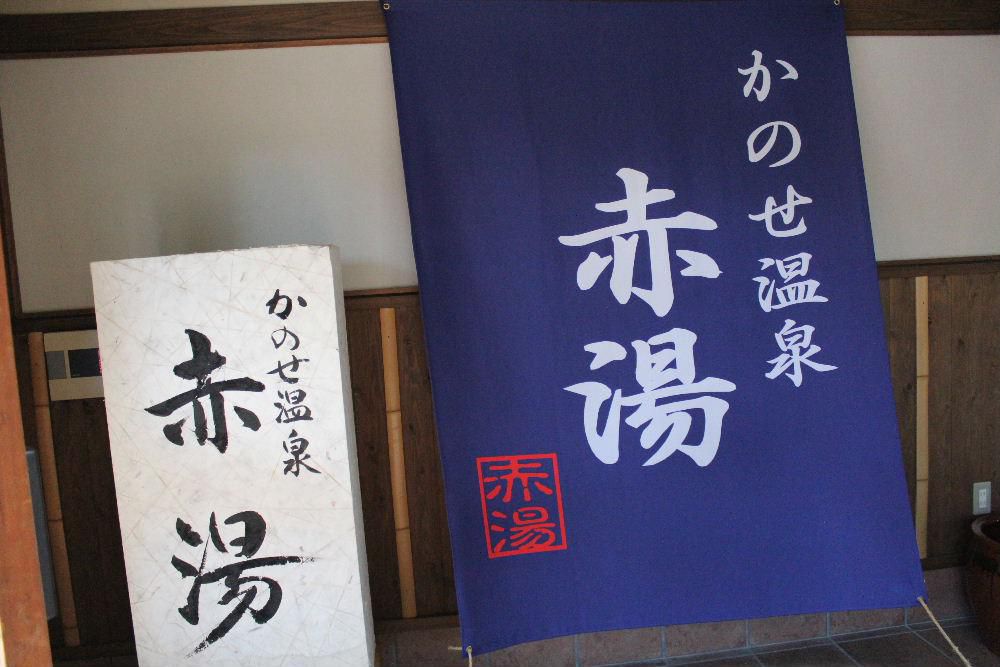 かのせ温泉
赤湯
かのせ温泉
赤湯
赤湯